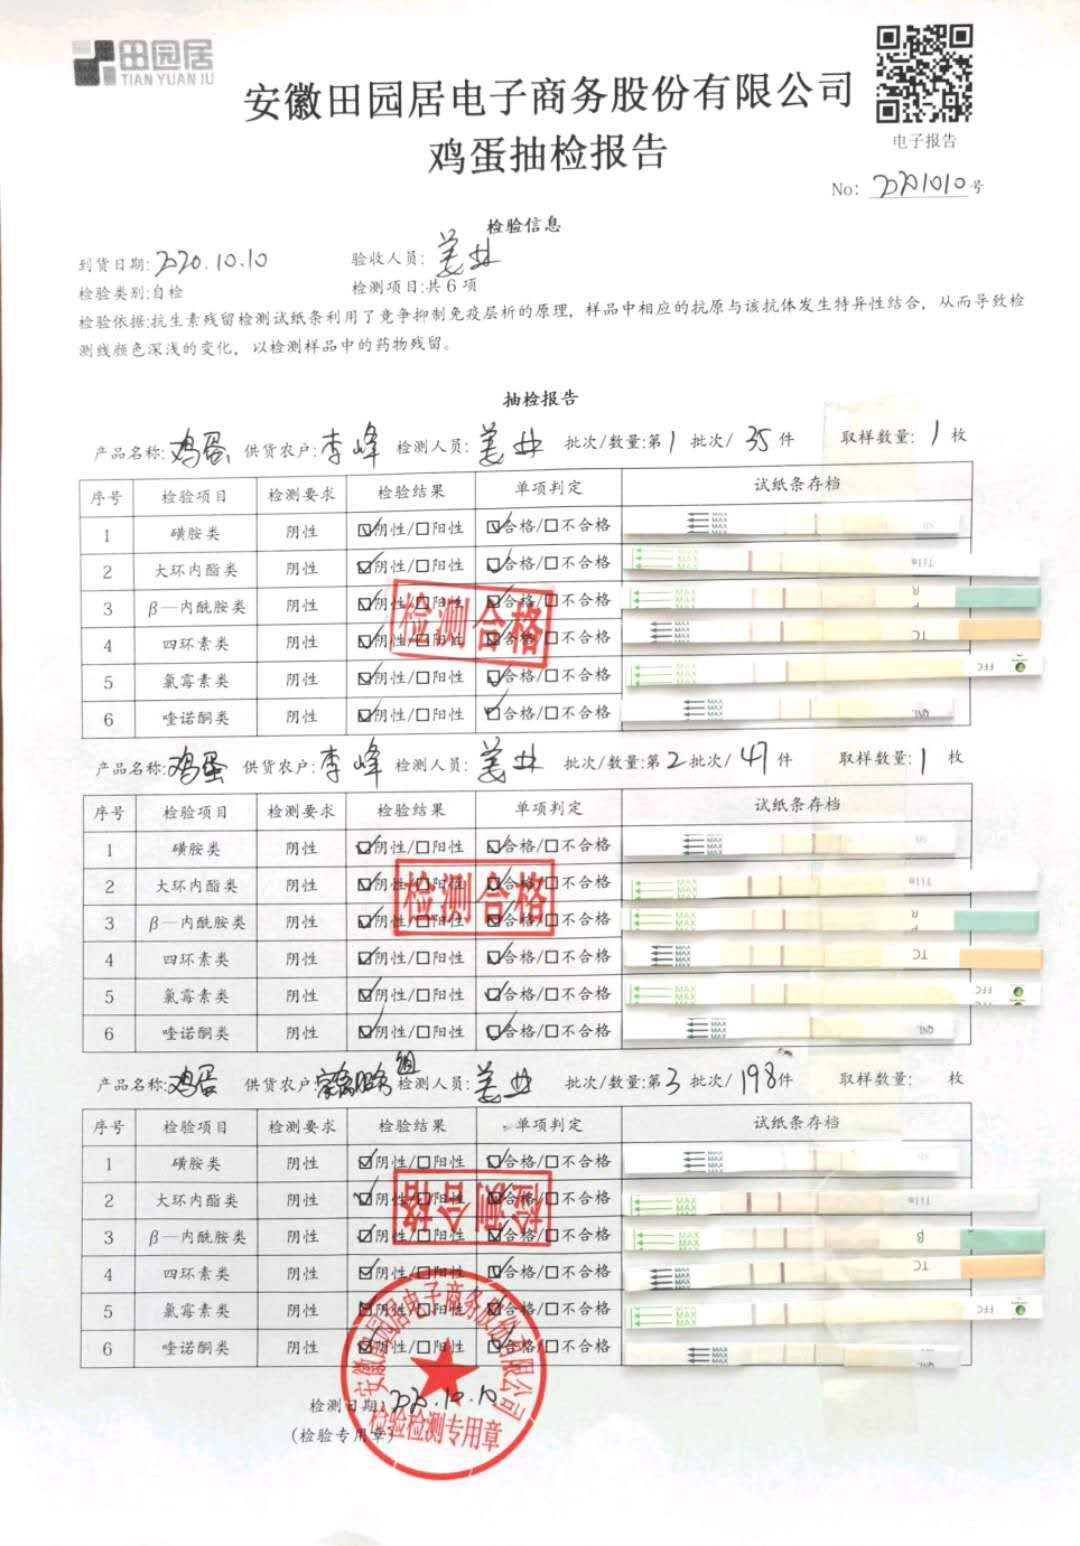 田园居
TIAN YUAN JU
安徽田园居电子商务股份有限公司
鸡蛋抽检报告
电子报告
No: 20201010号
检验信息
到货日期:2020.10.10 验收人员:姜业
检验类别:自检 检测项目:共6项
检验依据:抗生素残留检测试纸条利用了竞争抑制免疫层析的原理，样品中相应的抗原与该抗体发生特异性结合，从而导致检
测线颜色深浅的变化，以检测样品中的药物残留。
抽检报告
产品名称:鸡蛋 供货农户:李峰 检测人员:姜业 批次/数量:第1批次/35件 取样数量:1枚
序号 检验项目 检测要求 检验结果 单项判定 试纸条存档
1 磺胺类 阴性 ☑阴性/□阳性 ☑合格/□不合格 MAX SD
2 大环内酯类 阴性 ☑阴性/□阳性 ☑合格/□不合格 MAX Tilm
3 β—内酰胺类 阴性 ☑阴性/□阳性 ☑合格/□不合格 MAX
4 四环素类 阴性 ☑阴性/□阳性 ☑合格/□不合格 MAX TC
5 氯霉素类 阴性 ☑阴性/□阳性 ☑合格/□不合格 MAX FFC
6 喹诺酮类 阴性 ☑阴性/□阳性 ☑合格/□不合格 MAX QNL
检测合格
产品名称:鸡蛋 供货农户:李峰 检测人员:姜业 批次/数量:第2批次/47件 取样数量:1枚
序号 检验项目 检测要求 检验结果 单项判定 试纸条存档
1 磺胺类 阴性 ☑阴性/□阳性 ☑合格/□不合格 MAX SD
2 大环内酯类 阴性 ☑阴性/□阳性 ☑合格/□不合格 MAX Tilm
3 β—内酰胺类 阴性 ☑阴性/□阳性 ☑合格/□不合格 MAX
4 四环素类 阴性 ☑阴性/□阳性 ☑合格/□不合格 MAX TC
5 氯霉素类 阴性 ☑阴性/□阳性 ☑合格/□不合格 MAX FFC
6 喹诺酮类 阴性 ☑阴性/□阳性 ☑合格/□不合格 MAX QNL
检测合格
产品名称:鸡蛋 供货农户: 检测人员:姜业 批次/数量:第3批次/198件 取样数量: 枚
序号 检验项目 检测要求 检验结果 单项判定 试纸条存档
1 磺胺类 阴性 ☑阴性/□阳性 ☑合格/□不合格 MAX SD
2 大环内酯类 阴性 ☑阴性/□阳性 ☑合格/□不合格 MAX Tilm
3 β—内酰胺类 阴性 ☑阴性/□阳性 ☑合格/□不合格 MAX β
4 四环素类 阴性 ☑阴性/□阳性 ☑合格/□不合格 MAX TC
5 氯霉素类 阴性 ☑阴性/□阳性 ☑合格/□不合格 MAX FFC
6 喹诺酮类 阴性 ☑阴性/□阳性 ☑合格/□不合格 MAX QNL
检测合格
检测日期:2020.10.10
(检验专用章)
安徽田园居电子商务股份有限公司
检验检测专用章